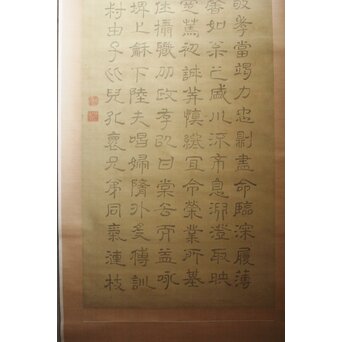 敬孝當竭力忠則盡命臨深履薄
馨如松之盛川流不息淵澄取映
定篤初誠美慎終宜令榮業所基
仕攝職從政存以甘棠去而益詠
卑上和下睦夫唱婦隨外受傅訓
叔猶子比兒孔懷兄弟同氣連枝